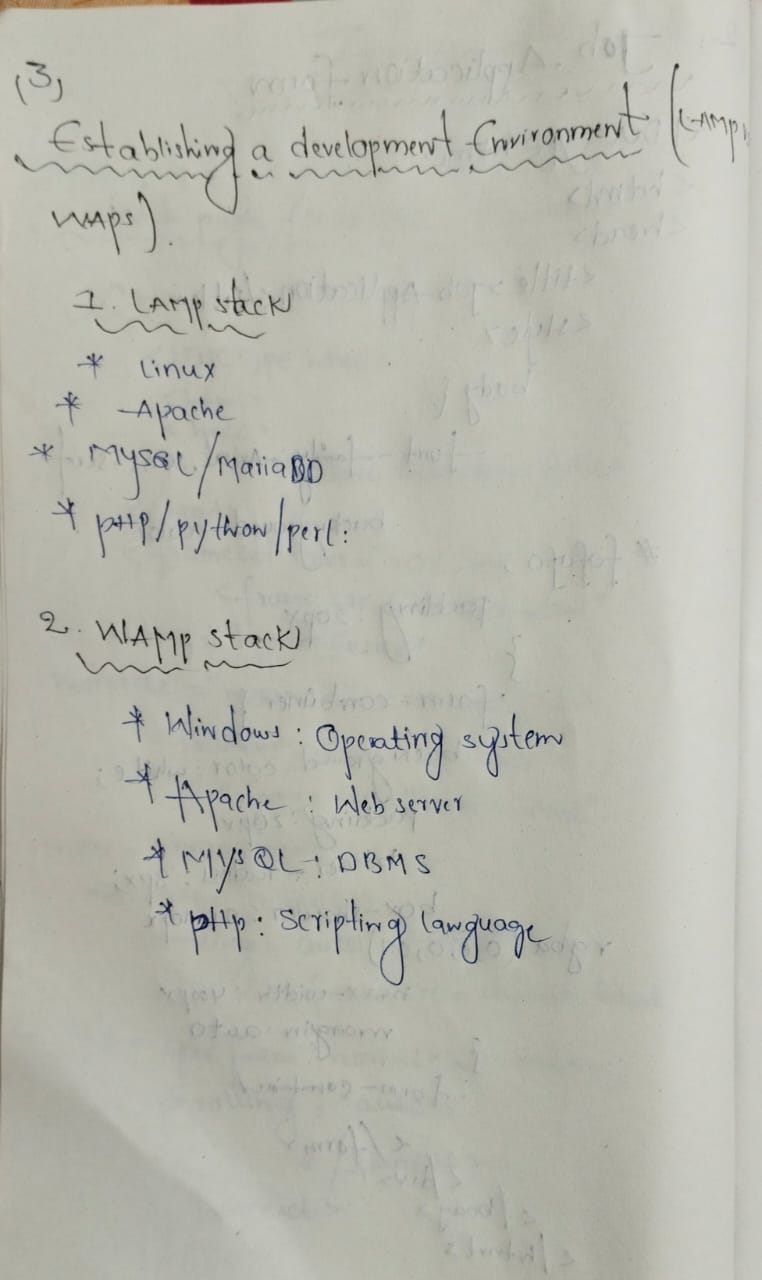 (3)
Establishing a development Environment (LAMP,
WAPS).
1. LAMP stack
* Linux
* Apache
* MySQL/MariaDD
* PHP/python/perl:
2. WAMP stack
* Windows: Operating system
* Apache: Web server
* MYSQL: DBMS
* PHP: Scripting language